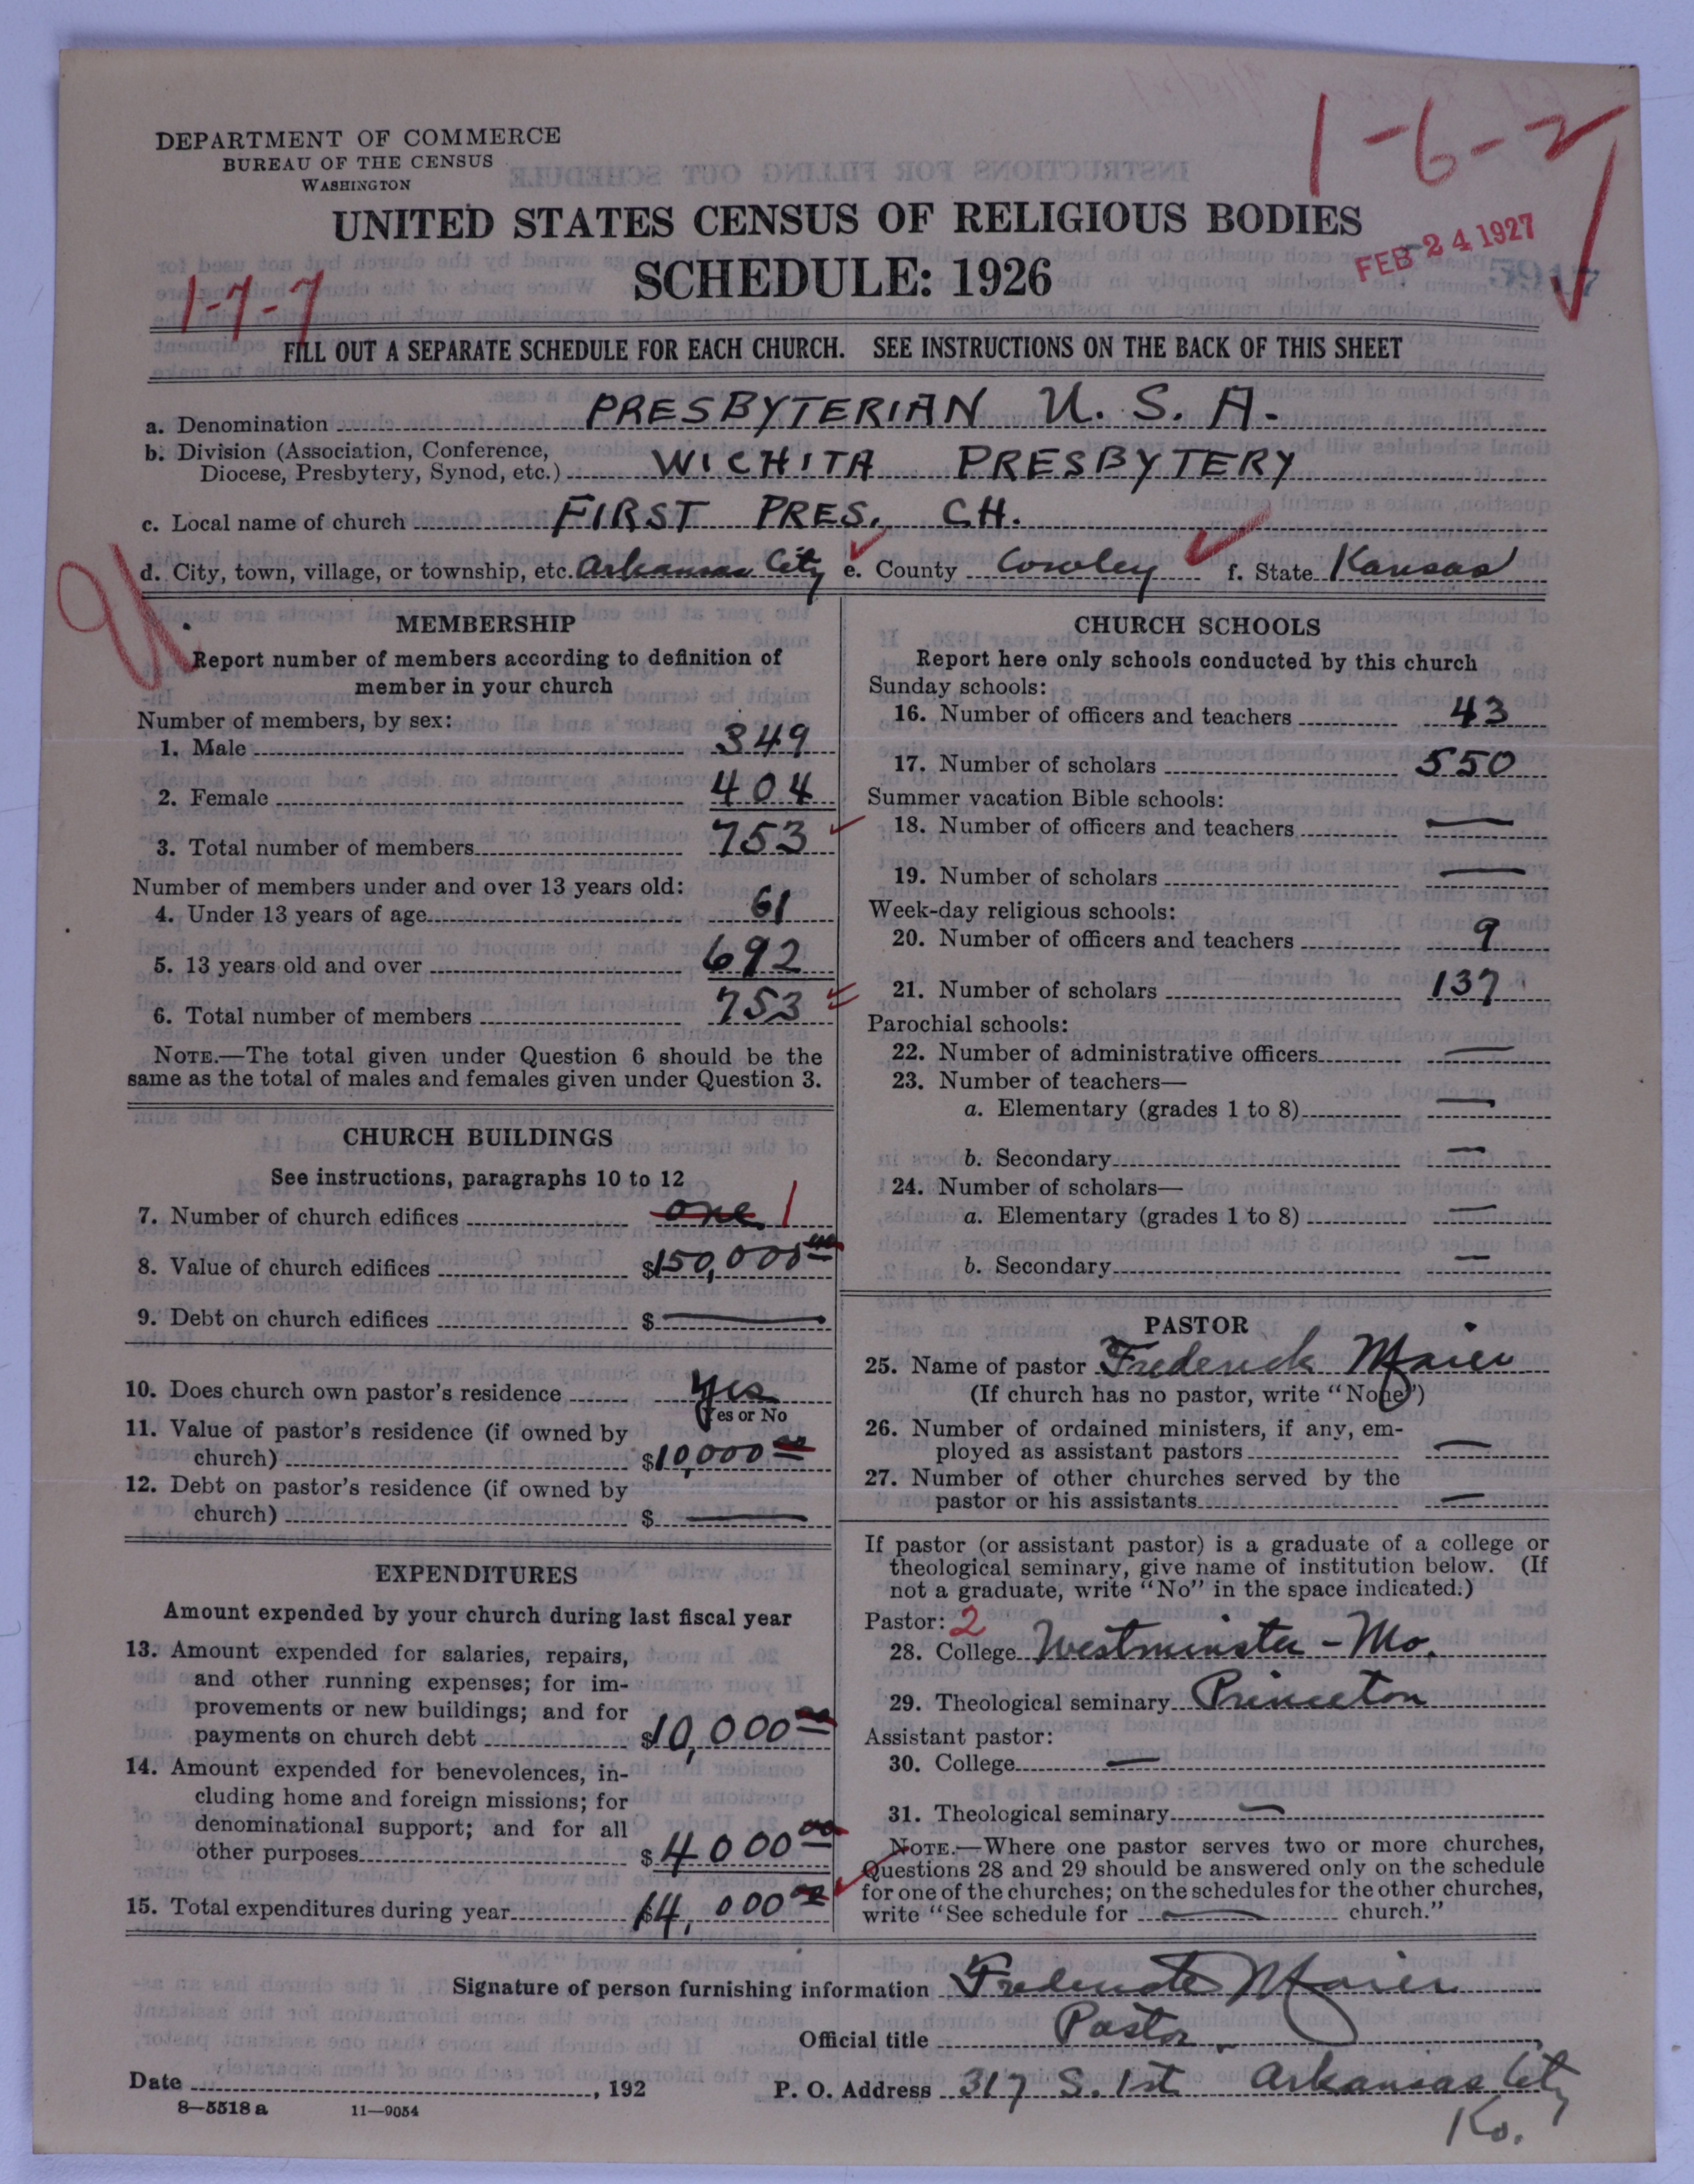 1-6-2
DEPARTMENT OF COMMERCE
BUREAU OF THE CENSUS
WASHINGTON
UNITED STATES CENSUS OF RELIGIOUS BODIES
FEB 24 1927
5917
SCHEDULE: 1926
1-7-7
FILL OUT A SEPARATE SCHEDULE FOR EACH CHURCH. SEE INSTRUCTIONS ON THE BACK OF THIS SHEET
a. Denomination PRESBYTERIAN U. S. A.
b. Division (Association, Conference,
Diocese, Presbytery, Synod, etc.) WICHITA PRESBYTERY
c. Local name of church FIRST PRES. CH.
d. City, town, village, or township, etc. Arkansas City e. County Cowley f. State Kansas
MEMBERSHIP
Report number of members according to definition of
member in your church
Number of members, by sex:
1. Male 349
2. Female 404
3. Total number of members 753
Number of members under and over 13 years old:
4. Under 13 years of age 61
5. 13 years old and over 692
6. Total number of members 753
NOTE.—The total given under Question 6 should be the
same as the total of males and females given under Question 3.
CHURCH BUILDINGS
See instructions, paragraphs 10 to 12
7. Number of church edifices one 1
8. Value of church edifices $150,000 00
9. Debt on church edifices $ —
10. Does church own pastor's residence Yes
Yes or No
11. Value of pastor's residence (if owned by
church) $10,000 00
12. Debt on pastor's residence (if owned by
church) $ —
EXPENDITURES
Amount expended by your church during last fiscal year
13. Amount expended for salaries, repairs,
and other running expenses; for im-
provements or new buildings; and for
payments on church debt $10,000 00
14. Amount expended for benevolences, in-
cluding home and foreign missions; for
denominational support; and for all
other purposes $4000 00
15. Total expenditures during year $14,000 00
CHURCH SCHOOLS
Report here only schools conducted by this church
Sunday schools:
16. Number of officers and teachers 43
17. Number of scholars 550
Summer vacation Bible schools:
18. Number of officers and teachers —
19. Number of scholars —
Week-day religious schools:
20. Number of officers and teachers 9
21. Number of scholars 137
Parochial schools:
22. Number of administrative officers —
23. Number of teachers—
a. Elementary (grades 1 to 8) —
b. Secondary —
24. Number of scholars—
a. Elementary (grades 1 to 8) —
b. Secondary —
PASTOR
25. Name of pastor Frederick Maier
(If church has no pastor, write "None")
26. Number of ordained ministers, if any, em-
ployed as assistant pastors —
27. Number of other churches served by the
pastor or his assistants —
If pastor (or assistant pastor) is a graduate of a college or
theological seminary, give name of institution below. (If
not a graduate, write "No" in the space indicated.)
Pastor: 2
28. College Westminster - Mo.
29. Theological seminary Princeton
Assistant pastor:
30. College —
31. Theological seminary —
NOTE.—Where one pastor serves two or more churches,
Questions 28 and 29 should be answered only on the schedule
for one of the churches; on the schedules for the other churches,
write "See schedule for — church."
Signature of person furnishing information Frederick Maier
Official title Pastor
Date , 192
P. O. Address 317 S. 1st. Arkansas City
Ks.
8—5518 a 11—9054